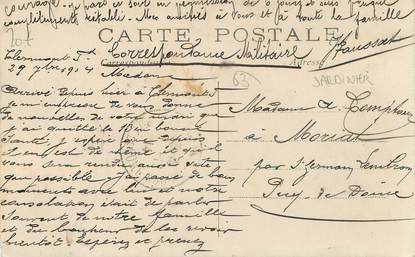 courage. Je pars ce soir en permission de 6 jours et suis presque
complètement rétabli. Mes amitiés à vous et à toute la famille
207
CARTE POSTALE
Correspondance Militaire
Correspondance
Adresse
Clermont Fd
29 9bre 1914
Madame
63
JARDINIER
Arrivé depuis hier à Clermont
je m'empresse de vous donner
de nouvelles de votre mari que
j'ai quitté le 10 en bonne
santé, j'espère que depuis
il en est de même et qu'il
vous sera rendu aussi vite
que possible. J'ai passé de bons
moments avec lui et notre
consolation était de parler
souvent de notre famille
et du bonheur de les revoir
bientôt. Espérez et prenez
Madame
à Moriat
par St Germain Lembron
Puy de Dôme